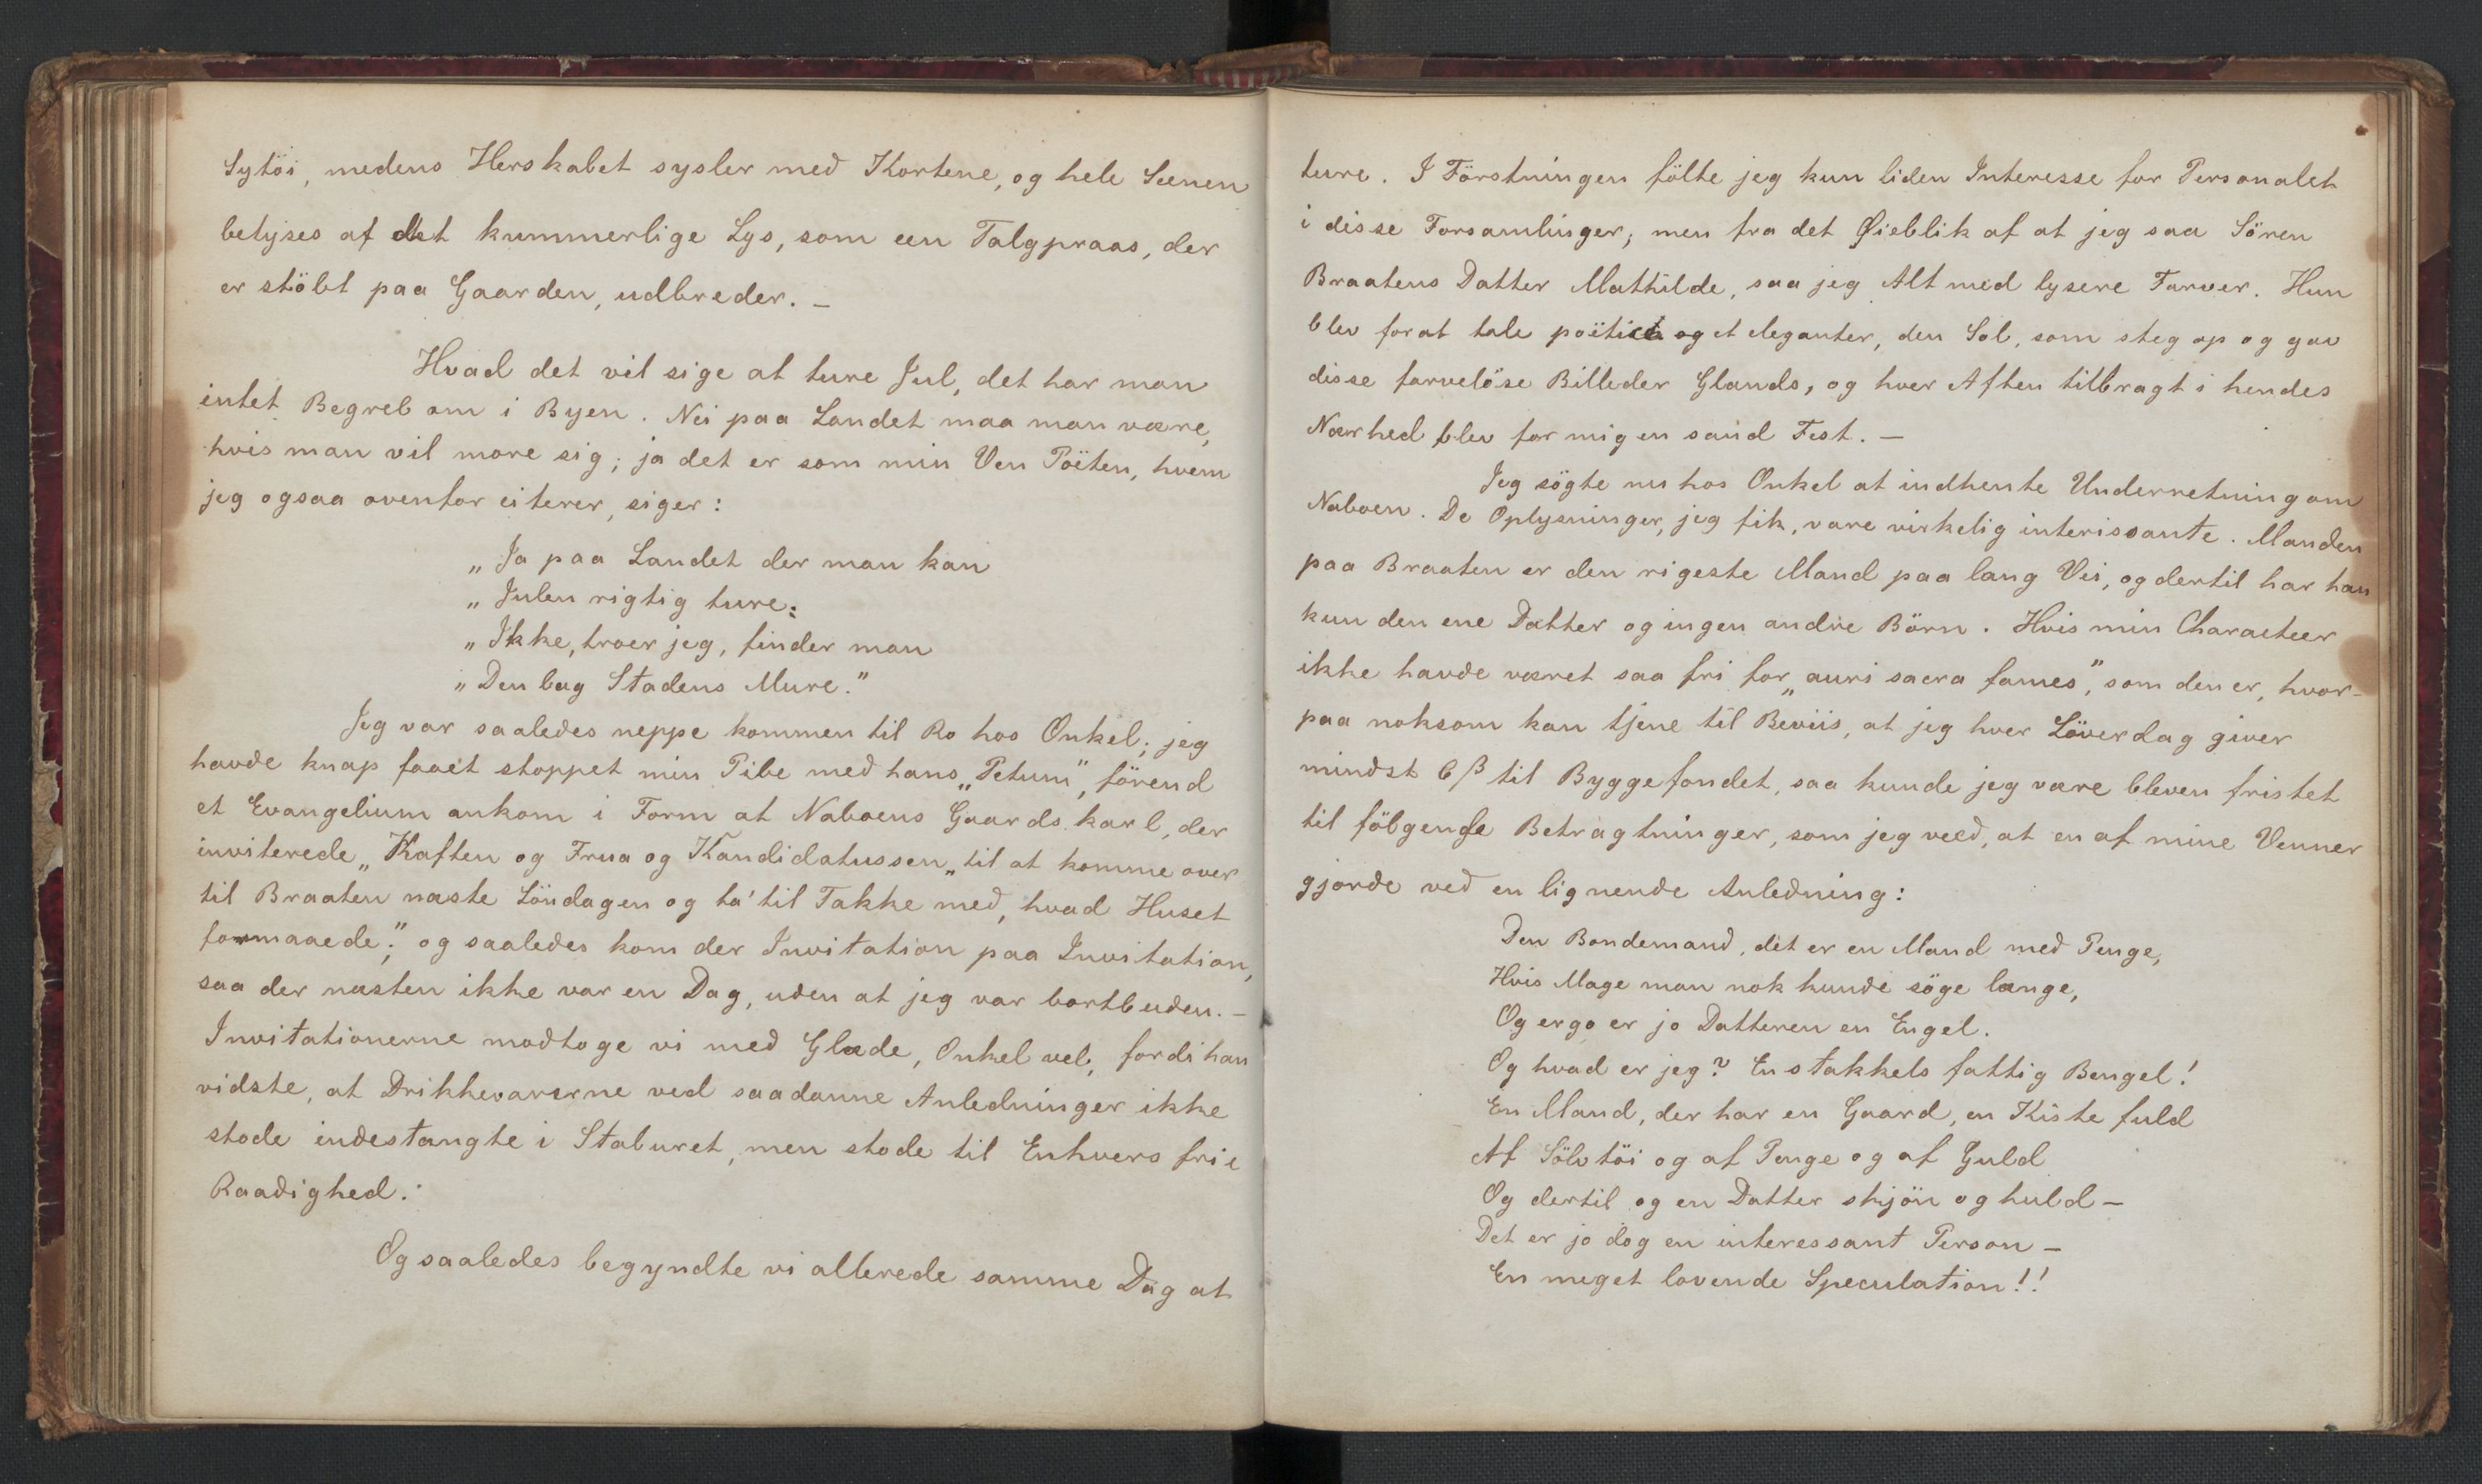 Sytöi, medens Herskabet sysler med Kortene, og hele Scenen
belyses af det kummerlige Lys, som een Talgpraas, der
er stöbt paa Gaarden, udbreder. –
Hvad det vil sige at ture Jul, det har man
intet Begreb om i Byen. Nei paa Landet maa man være,
hvis man vil more sig; ja det er som min Ven Poëten, hvem
jeg ogsaa ovenfor citerer, siger:
„Ja paa Landet der man kan
„Julen rigtig ture;
„Ikke, troer jeg, finder man
„Den bag Stadens Mure."
Jeg var saaledes neppe kommen til Ro hos Onkel; jeg
havde knap faaet stoppet min Pibe med hans „Petum", förend
et Evangelium ankom i Form at Naboens Gaardskarl, der
inviterede „Kaften og Frua og Kandidatussen„ til at komme over
til Braaten næste Löndagen og ta' til Takke med, hvad Huset
formaaede;" og saaledes kom der Invitation paa Invitation,
saa der næsten ikke var en Dag, uden at jeg var bortbuden. –
Invitationerne modtoge vi med Glæde, Onkel vel, fordi han
vidste, at Drikkevarerne ved saadanne Anledninger ikke
stode indestængte i Staburet, men stode til Enhvers frie
Raadighed.
Og saaledes begyndte vi allerede samme Dag at
ture. I Förstningen fölte jeg kun liden Interesse for Personalet
i disse Forsamlinger; men fra det Øieblik af at jeg saa Sören
Braatens Datter Mathilde, saa jeg Alt med lysere Farver. Hun
blev for at tale poëtice og et eleganter, den Sol, som steg op og gav
disse farvelöse Billeder Glands, og hver Aften tilbragt i hendes
Nærhed blev for mig en sand Fest. –
Jeg sögte nu hos Onkel at indhente Underretning om
Naboen. De Oplysninger, jeg fik, vare virkelig interissante. Manden
paa Braaten er den rigeste Mand paa lang Vei, og dertil har han
kun den ene Datter og ingen andre Börn. Hvis min Characteer
ikke havde været saa fri for „auri sacra fames", som den er, hvor-
paa noksom kan tjene til Beviis, at jeg hver Löverdag giver
mindst 6 ß til Byggefondet, saa kunde jeg være bleven fristet
til fölgende Betragtninger, som jeg veed, at en af mine Venner
gjorde ved en lignende Anledning:
Den Bondemand, det er en Mand med Penge,
Hvis Mage man nok kunde söge længe,
Og ergo er jo Datteren en Engel.
Og hvad er jeg? En stakkels fattig Bengel!
En Mand, der har en Gaard, en Kiste fuld
Af Sölvtöi og af Penge og af Guld
Og dertil og en Datter skjön og huld –
Det er jo dog en interessant Person –
En meget lovende Speculation!!